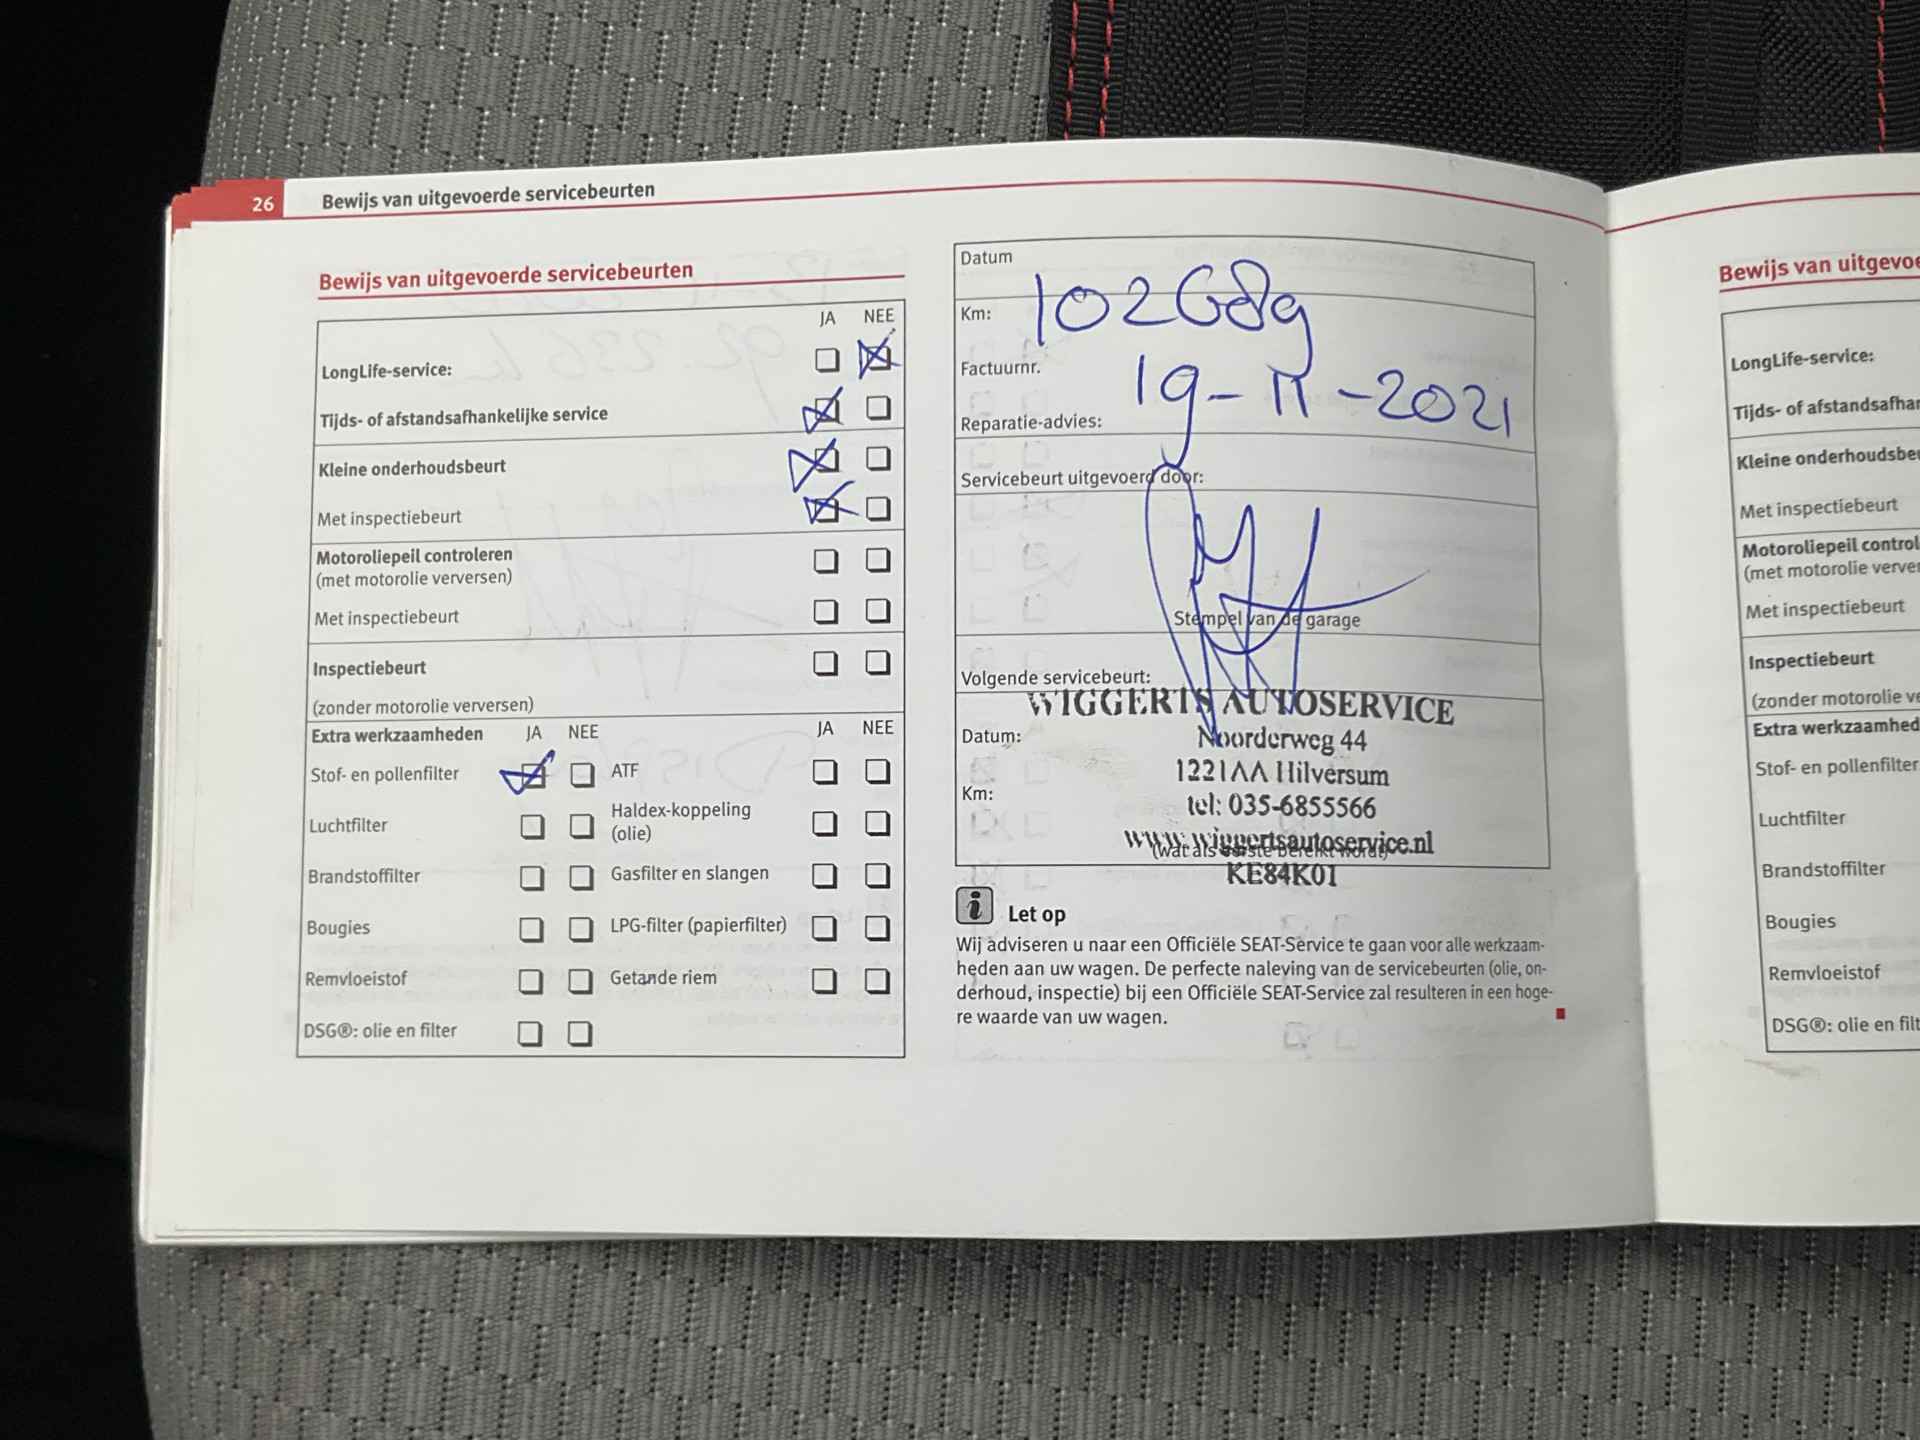 26 Bewijs van uitgevoerde servicebeurten
Bewijs van uitgevoerde servicebeurten
JA NEE
LongLife-service:
Tijds- of afstandsafhankelijke service
Kleine onderhoudsbeurt
Met inspectiebeurt
Motoroliepeil controleren
(met motorolie verversen)
Met inspectiebeurt
Inspectiebeurt
(zonder motorolie verversen)
Extra werkzaamheden JA NEE JA NEE
Stof- en pollenfilter ATF
Luchtfilter Haldex-koppeling
(olie)
Brandstoffilter Gasfilter en slangen
Bougies LPG-filter (papierfilter)
Remvloeistof Getande riem
DSG®: olie en filter
Datum
Km: 102689
Factuurnr.
19-11-2021
Reparatie-advies:
Servicebeurt uitgevoerd door:
Stempel van de garage
Volgende servicebeurt:
WIGGERTS AUTOSERVICE
Datum: Noorderweg 44
1221AA Hilversum
Km: tel: 035-6855566
www.wiggertsautoservice.nl
(wat als eerste bereikt wordt)
KE84K01
i Let op
Wij adviseren u naar een Officiële SEAT-Service te gaan voor alle werkzaam-
heden aan uw wagen. De perfecte naleving van de servicebeurten (olie, on-
derhoud, inspectie) bij een Officiële SEAT-Service zal resulteren in een hoge-
re waarde van uw wagen.
Bewijs van uitgevoe
LongLife-service:
Tijds- of afstandsafhan
Kleine onderhoudsbeu
Met inspectiebeurt
Motoroliepeil control
(met motorolie verver
Met inspectiebeurt
Inspectiebeurt
(zonder motorolie ve
Extra werkzaamhed
Stof- en pollenfilter
Luchtfilter
Brandstoffilter
Bougies
Remvloeistof
DSG®: olie en filt